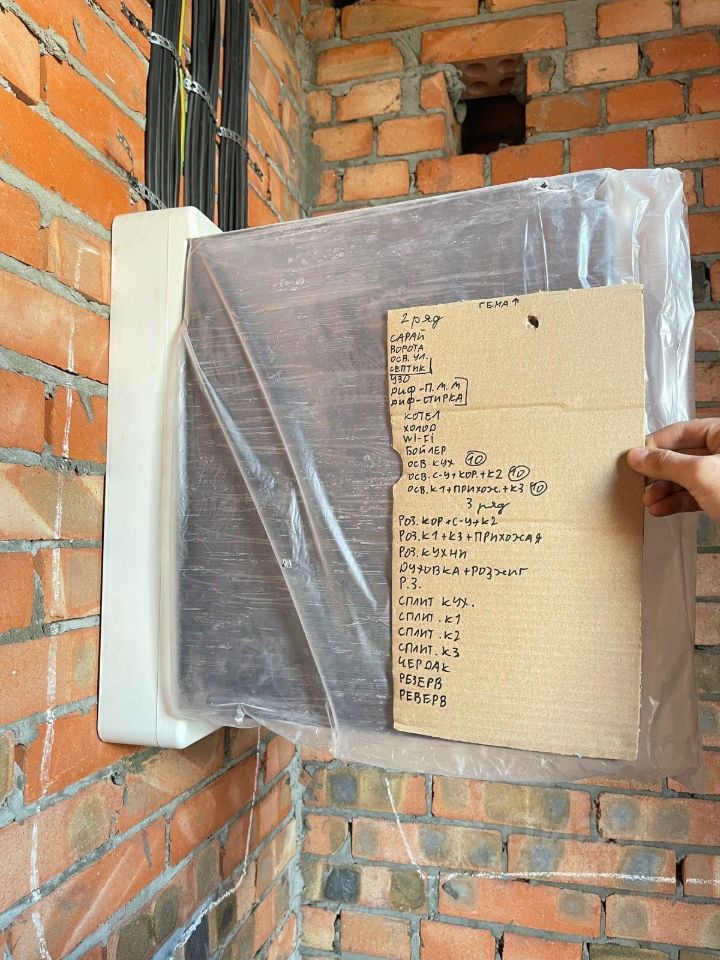 ГЕМА↑
2 ряд
САРАЙ
ВОРОТА
ОСВ. УЛ.
СЕПТИК
УЗО
ДИФ-П.М.М
ДИФ-СТИРКА
КОТЕЛ
ХОЛОД
Wi-Fi
БОЙЛЕР
ОСВ. КУХ 10
ОСВ. С-У+КОР.+К2 10
ОСВ. К1+ПРИХОЖ.+К3 10
3 ряд
РОЗ. КОР+С-У+К2
РОЗ. К1+К3+ПРИХОЖАЯ
РОЗ. КУХНИ
ДУХОВКА+РОЗЖИГ
Р.З.
СПЛИТ КУХ.
СПЛИТ. К1
СПЛИТ. К2
СПЛИТ. К3
ЧЕРДАК
РЕЗЕРВ
РЕВЕРВ